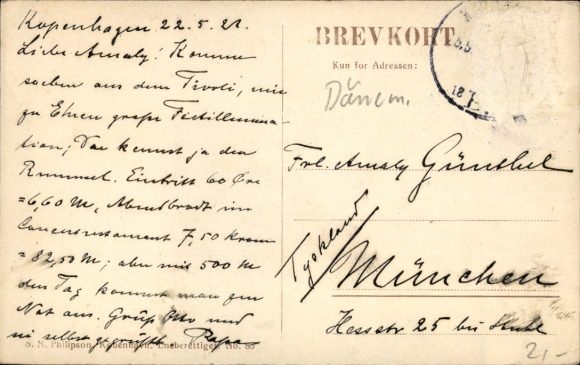 Kopenhagen 22.5.21.
Liebe Amaly! Komme
soeben aus dem Tivoli, wie
zu Ehren große Festillumina-
tion; Du kennst ja den
Rummel. Eintritt 60 Øre
= 6,60 M, Abendbrodt im
Concertrestaurant 7,50 kronen
= 82,50 M; aber mit 500 M
den Tag kommt man zur
Not aus. Gruß Otto und
sei selbst gegrüßt Papa
S. N. Philipson, København. Eneberettiget. No. 85
BREVKORT
Kun for Adressen:
Dänem.
Frl. Amaly Günthel
Tyskland
München
Hessstr 25 bei
2,-